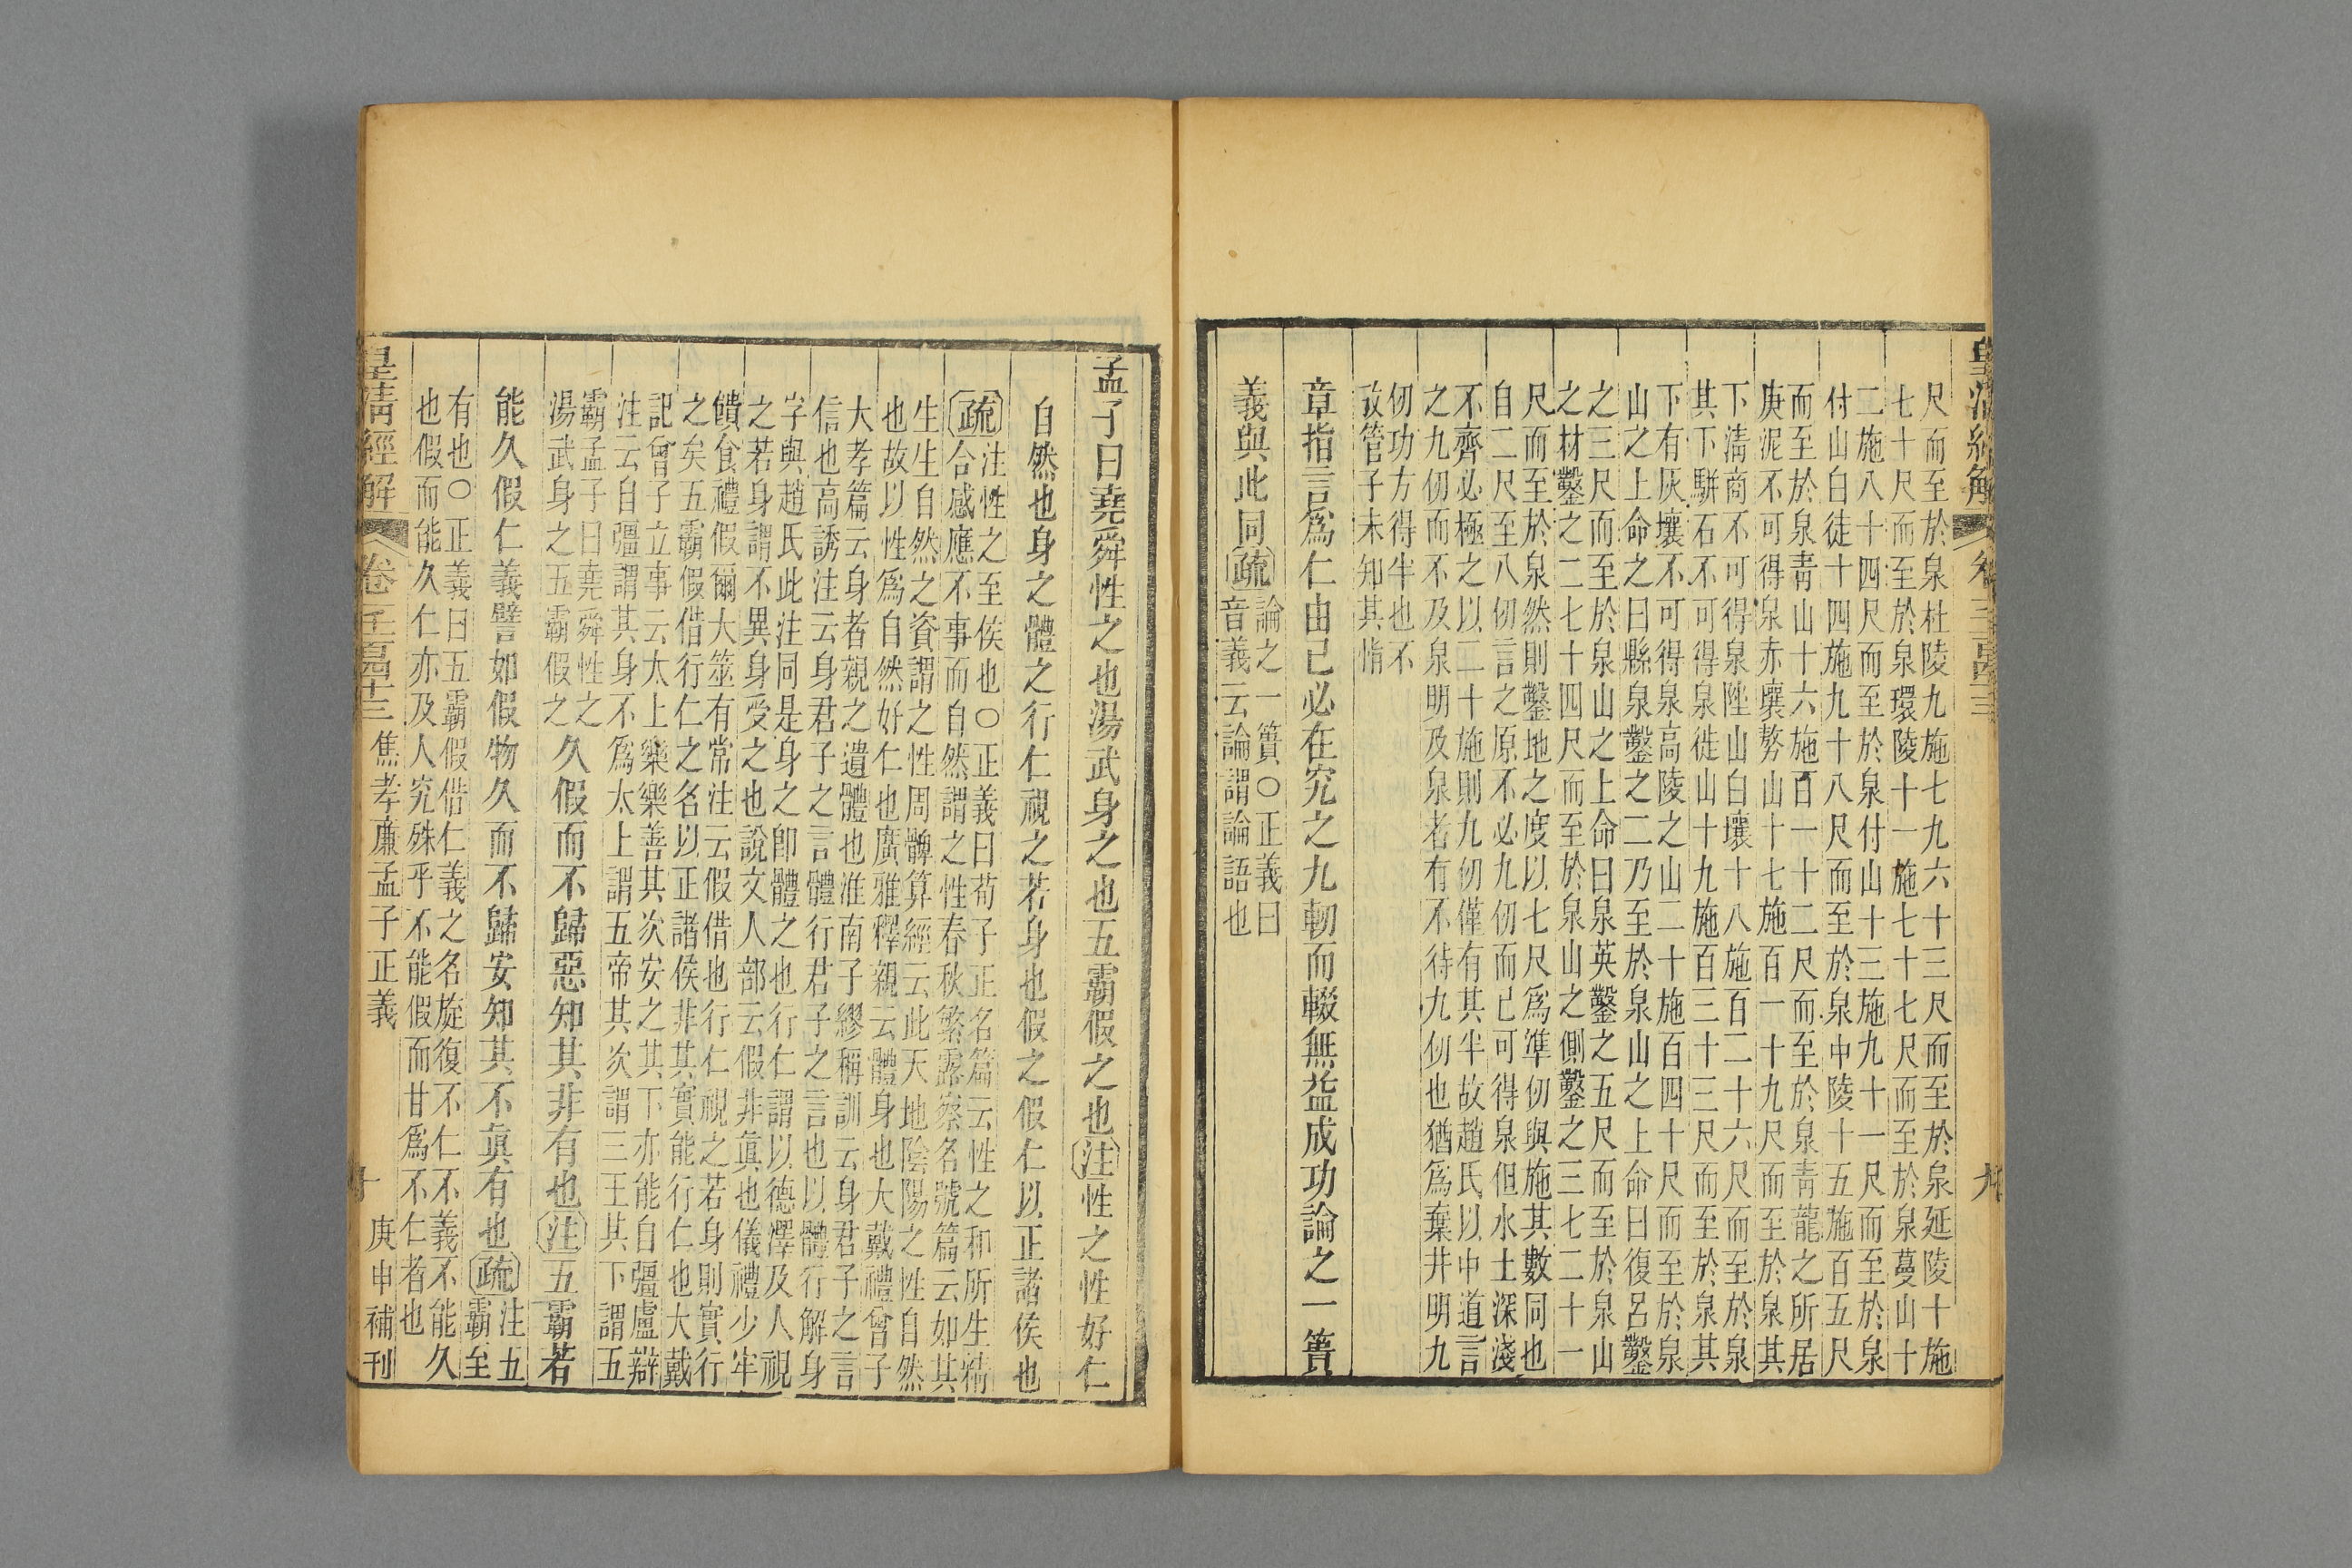 皇清經解 卷
九
尺而至於泉杜陵九施七九六十三尺而至於泉延陵十施
七十尺而至於泉環陵十一施七十七尺而至於泉蔓山十
二施八十四尺而至於泉付山十三施九十一尺而至於泉
付山白徒十四施九十八尺而至於泉中陵十五施百五尺
而至於泉青山十六施百一十二尺而至於泉青龍之所居
庚泥不可得泉赤壤㔟山十七施百一十九尺而至於泉其
下淸商不可得泉陞山白壤十八施百二十六尺而至於泉
其下駢石不可得泉徙山十九施百三十三尺而至於泉其
下有灰壤不可得泉高陵之山二十施百四十尺而至於泉
山之上命之曰縣泉鑿之二乃至於泉山之上命曰復呂鑿
之三尺而至於泉山之上命曰泉英鑿之五尺而至於泉山
之材鑿之二七十四尺而至於泉山之側鑿之三七二十一
尺而至於泉然則鑿地之度以七尺爲準仞與施其數同也
自二尺至八仞言之原不必九仞而已可得泉但水土深淺
不齊必極之以二十施則九仞僅有其半故趙氏以中道言
之九仞而不及泉明及泉者有不待九仞也猶爲棄井明九
仞功方得半也不
攷管子未知其恉
章指言爲仁由己必在究之九軔而輟無益成功論之一簣
義與此同疏論之一簣○正義曰
音義云論謂論語也
孟子曰堯舜性之也湯武身之也五霸假之也注性之性好仁
自然也身之體之行仁視之若身也假之假仁以正諸侯也
疏注性之至侯也○正義曰荀子正名篇云性之和所生精
合感應不事而自然謂之性春秋繁露察名號篇云如其
生生自然之資謂之性周髀算經云此天地陰陽之性自然
也故以性爲自然好仁也廣雅釋親云體身也大戴禮曾子
大孝篇云身者親之遺體也淮南子繆稱訓云身君子之言
信也高誘注云身君子之言體行君子之言也以體行解身
字與趙氏此注同是身之卽體之也行仁謂以德澤及人視
之若身謂不異身受之也說文人部云假非眞也儀禮少牢
饋食禮假爾大筮有常注云假借也行仁視之若身則實行
之矣五霸假借行仁之名以正諸侯非其實能行仁也大戴
記曾子立事云太上樂樂善其次安之其下亦能自彊盧辯
注云自彊謂其身不爲太上謂五帝其次謂三王其下謂五
霸孟子曰堯舜性之
湯武身之五霸假之久假而不歸惡知其非有也注五霸若
能久假仁義譬如假物久而不歸安知其不眞有也疏注五
霸至
有也○正義曰五霸假借仁義之名旋復不仁不義不能久
也假而能久仁亦及人究殊乎不能假而甘爲不仁者也
皇清經解 卷 焦孝廉孟子正義 十 庚申補刊